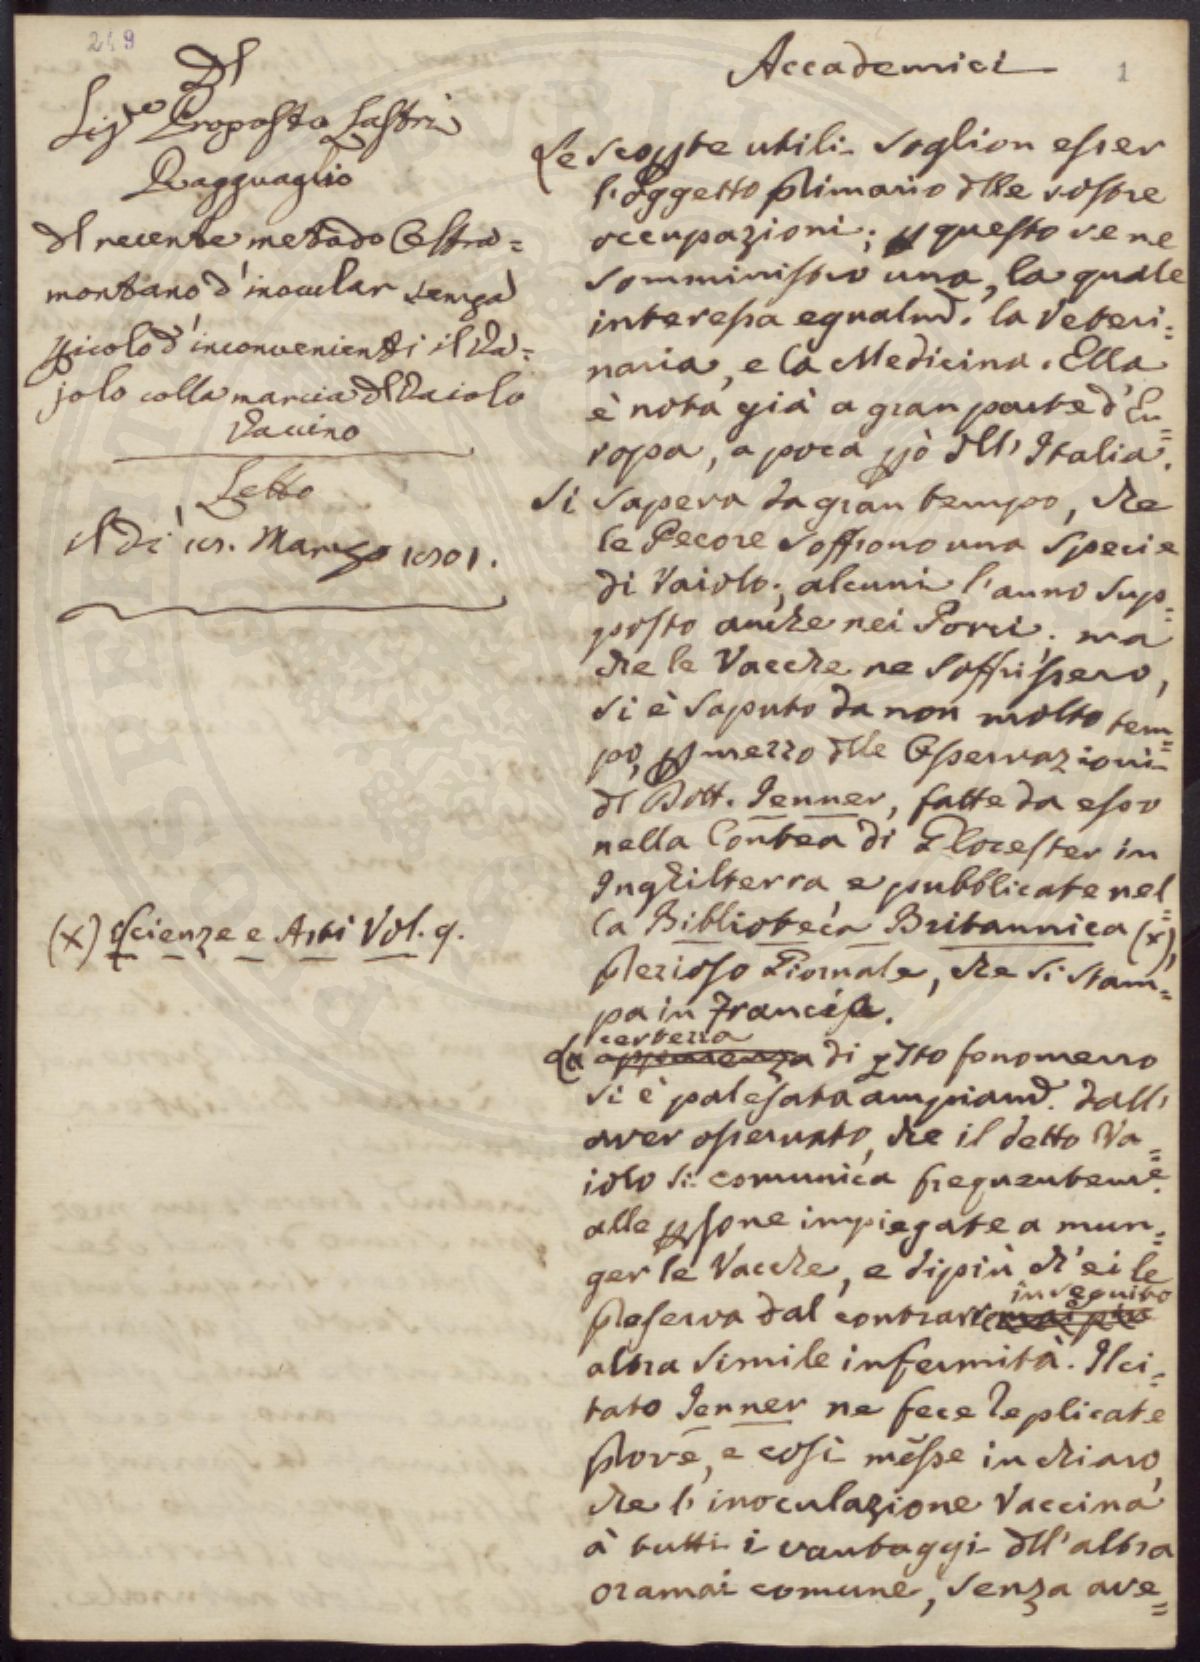 249
Dl
Sigre Proposto Lastri
Ragguaglio
Dl recente metodo Oltra=
montano d'inocular senza
pericolo d'inconvenienti il Va=
jolo colla marcia dl Vaiolo
Vaccino
Letto
il dì 18. Marzo 1801.
(x) Scienze e Arti Vol. 9.
Accademici
1
Le scopte utili soglion esser
l'oggetto primario dlle vostre
occupazioni; p questo ve ne
somministro una, la quale
interessa egualmd. la Veteri=
naria, e la Medicina. Ella
è nota già a gran parte d'Eu=
ropa, a poca pò dll'Italia.
Si sapeva da gran tempo, che
le Pecore soffrono una specie
di Vaiolo; alcuni l'anno sup=
posto anche nei Porci; ma
che le Vacche ne soffrissero,
si è saputo da non molto tem=
po, p mezzo dlle Osservazioni
dl Dott. Jenner, fatte da esso
nella Contea di Glocester in
Inghilterra, e pubblicate nel=
la Biblioteca Britannica (x),
prezioso Giornale, che si stam=
pa in Francia.
certezza
La apparenza di qsto fenomeno
si è palesata ampiamd. dall'
aver osservato, che il detto Va=
iolo si comunica frequenteme.
alle psone impiegate a mun=
ger le Vacche, e di più ch'ei le
in seguito
preserva dal contrarre mai più
altra simile infermità. Il ci=
tato Jenner ne fece replicate
prove, e così messe in chiaro,
che l'inoculazione Vaccina
à tutti i vantaggi dll'altra
oramai comune, senza ave=